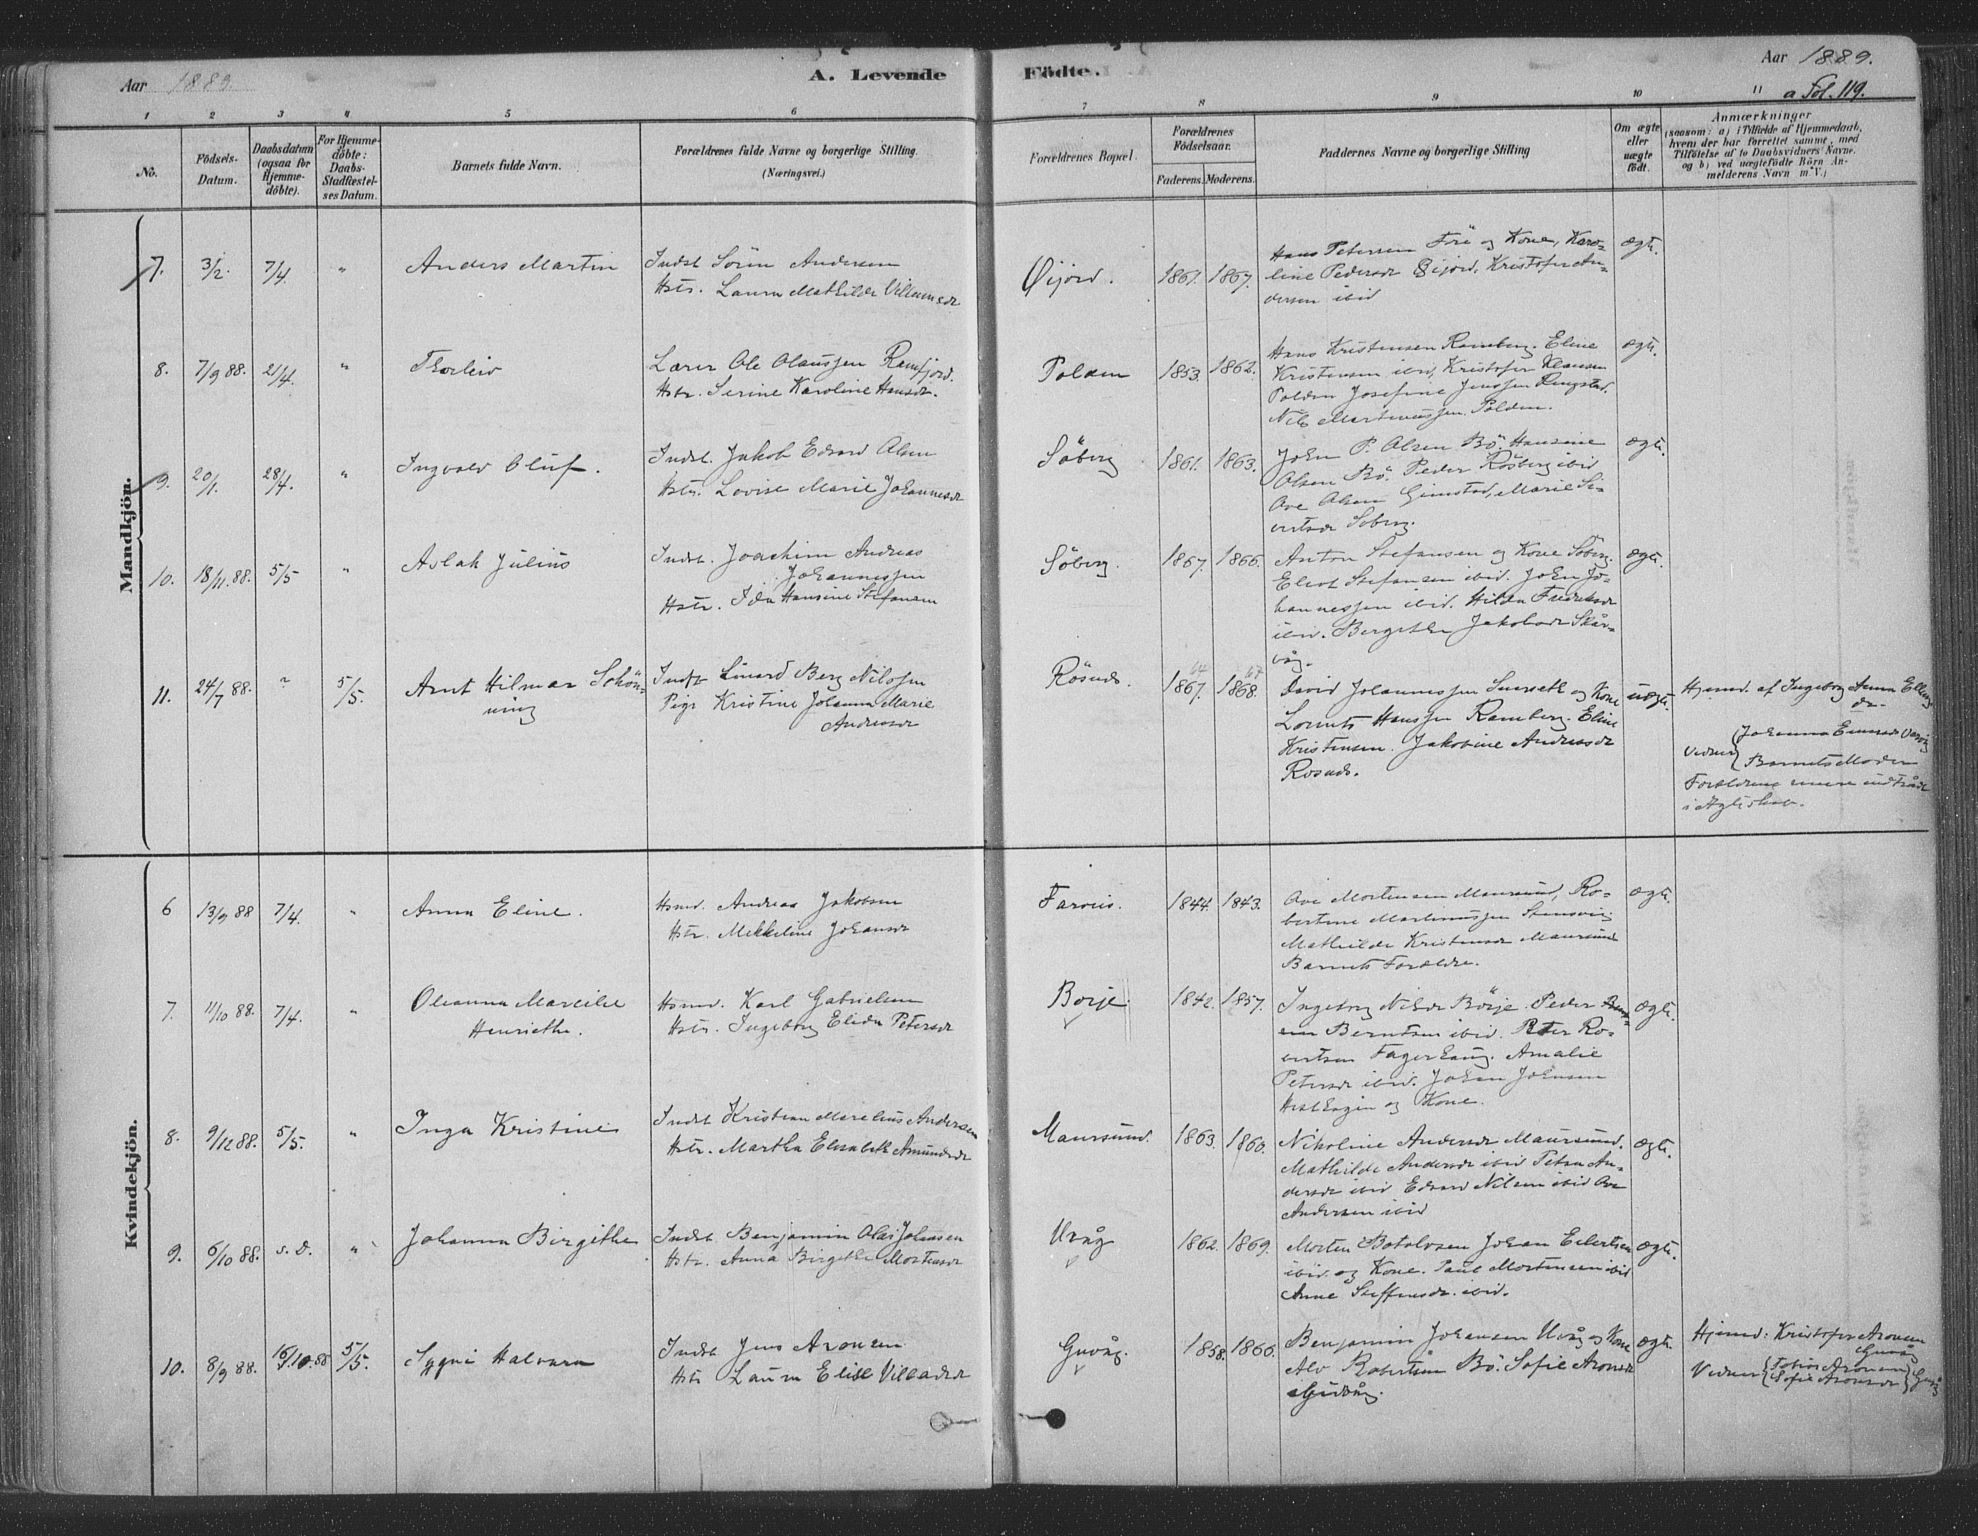 Aar 1889.
A. Levende
Födte.
Aar 1889.
a Fol. 119.
1 2 3 4 5 6 7 8 9 10 11
No.
Födsels-
Datum.
Daabsdatum
(ogsaa for
Hjemme-
döbte).
For Hjemme-
döbte:
Daabs-
Stadfæstel-
ses Datum.
Barnets fulde Navn.
Forældrenes fulde Navne og borgerlige Stilling
(Næringsvei.)
Forældrenes Bopæl.
Forældrenes
Födselsaar.
Faderens. Moderens.
Faddernes Navne og borgerlige Stilling
Om ægte
eller
uægte
födt.
Anmærkninger
(saasom: a) i Tilfælde af Hjemmedaab,
hvem der har forrettet samme, med
Tilföielse af to Daabsvidners Navne.
og b) ved uægtefödte Börn An-
melderens Navn m. V.)
Mandkjön.
7. 3/2. 7/4. " Anders Martin
Indst Sören Andersen
Hstr. Laura Mathilde Villumsdr
Øijord. 1861. 1867.
Hans Petersen Före og Kone, Karo-
line Pedersdr Øijord, Kristofer An-
dersen ibid
ægte.
8. 7/9 88. 21/4. " Thorleiv
Lærer Ole Olaussen Ramfjord.
Hstr. Serine Karoline Hansdr.
Polden 1853. 1862.
Hans Kristensen Ramberg. Eline
Kristensen ibid, Kristofer Klausen
Polden Josefine Jenssen Ringstad.
Nils Martinussen Polden.
ægte.
9. 20/1. 28/4. " Ingvald Oluf.
Indst. Jakob Edvard Olsen
Hstr. Lovise Marie Johannesdr
Söberg 1861. 1863.
John P. Olsen Bö. Hansine
Olsen Bö. Peder Röberg ibid
Ove Olsen Gimstad, Marie Si-
vertsdr Söberg.
ægte.
10. 18/11. 88. 5/5 " Aslak Julius
Indst. Joachim Andreas
Johannessen
Hstr. Ida Hansine Stefansen
Söberg. 1867. 1866.
Anton Stefansen og Kone Söberg.
Eliot Stefansen ibid. John Jo-
hannessen ibid. Hilda Fredriksdr
ibid. Bergithe Jakobsdr Skår-
våg.
ægte.
11. 24/7 88. " 5/5. Arnt Hilmar Schön-
ning
Indst Einard Berg Nilssen
Pige Kristine Johanna Marie
Andreasdr
Rösnes. 1867. 1868.
64 67
David Johannessen Sunseth og Kone
Lorents Hanssen Ramberg. Eline
Kristensen. Jakobine Andreasdr
Rosnes.
uægte.
Hjemd. af Ingeborg Anna Ellings
dr.
Vidner { Johanna Einarsdr Vaaig
Barnets Moder
Forældrene senere indtraadt
i Ægteskab.
Kvindekjön.
6 13/9 88 7/4. " Anna Eline.
Hsmd. Andreas Jakobsen
Hstr. Mekkeline Johansdr
1844. 1843.
Ove Mortensen Maursund, Ro-
bertine Martinussen Stensvig
Mathilde Kristensdr Maursund
Barnets Forældre.
ægte.
7. 11/10 88. 7/4. " Oleanna Mareilie
Henriethe.
Hsmd. Karl Gabrielsen
Hstr. Ingeborg Elida Petersdr
Börje. 1842. 1857.
Ingeborg Nilsdr Börje. Peder
Berntsen ibid. Peter Ro-
bertsen Fagerhaug. Amalie
Petersdr ibid. Johan Johnsen
Hesthagen og Kone.
ægte.
8. 9/12 88. 5/5. " Inga Kristine
Indst Kristian Marelius Andersen
Hstr. Martha Elisabeth Amundsdr
Maursund. 1863. 1860.
Nikoline Andersdr Maursund.
Mathilde Andersdr ibid Petra An-
dersdr ibid Edvard Nilsen ibid Ove
Andersen ibid
ægte.
9. 6/10 88. s. d. " Johanna Birgithe
Indst. Benjamin Olai Johnsen
Hstr. Anna Birgithe Mortensdr
Uvåg 1862. 1869.
Morten Botolvsen Johan Eilertsen
ibid og Kone. Paul Mortensen ibid
Anne Steffensdr. ibid.
ægte.
10. 8/9 88. 16/10. 88 5/5. Sygni Halvara
Indst Jens Aronsen
Hstr Laura Elise Villadsdr
Guvåg. 1858. 1866.
Benjamin Johansen Uvåg og Kone
Alv Robertsen Bö. Sofie Aronsdr
Guvåg.
ægte.
Hjemd: Kristofer Aronsen
Guvåg
Vidner { Tobias Aronsen
Sofie Aronsdr } Guvåg